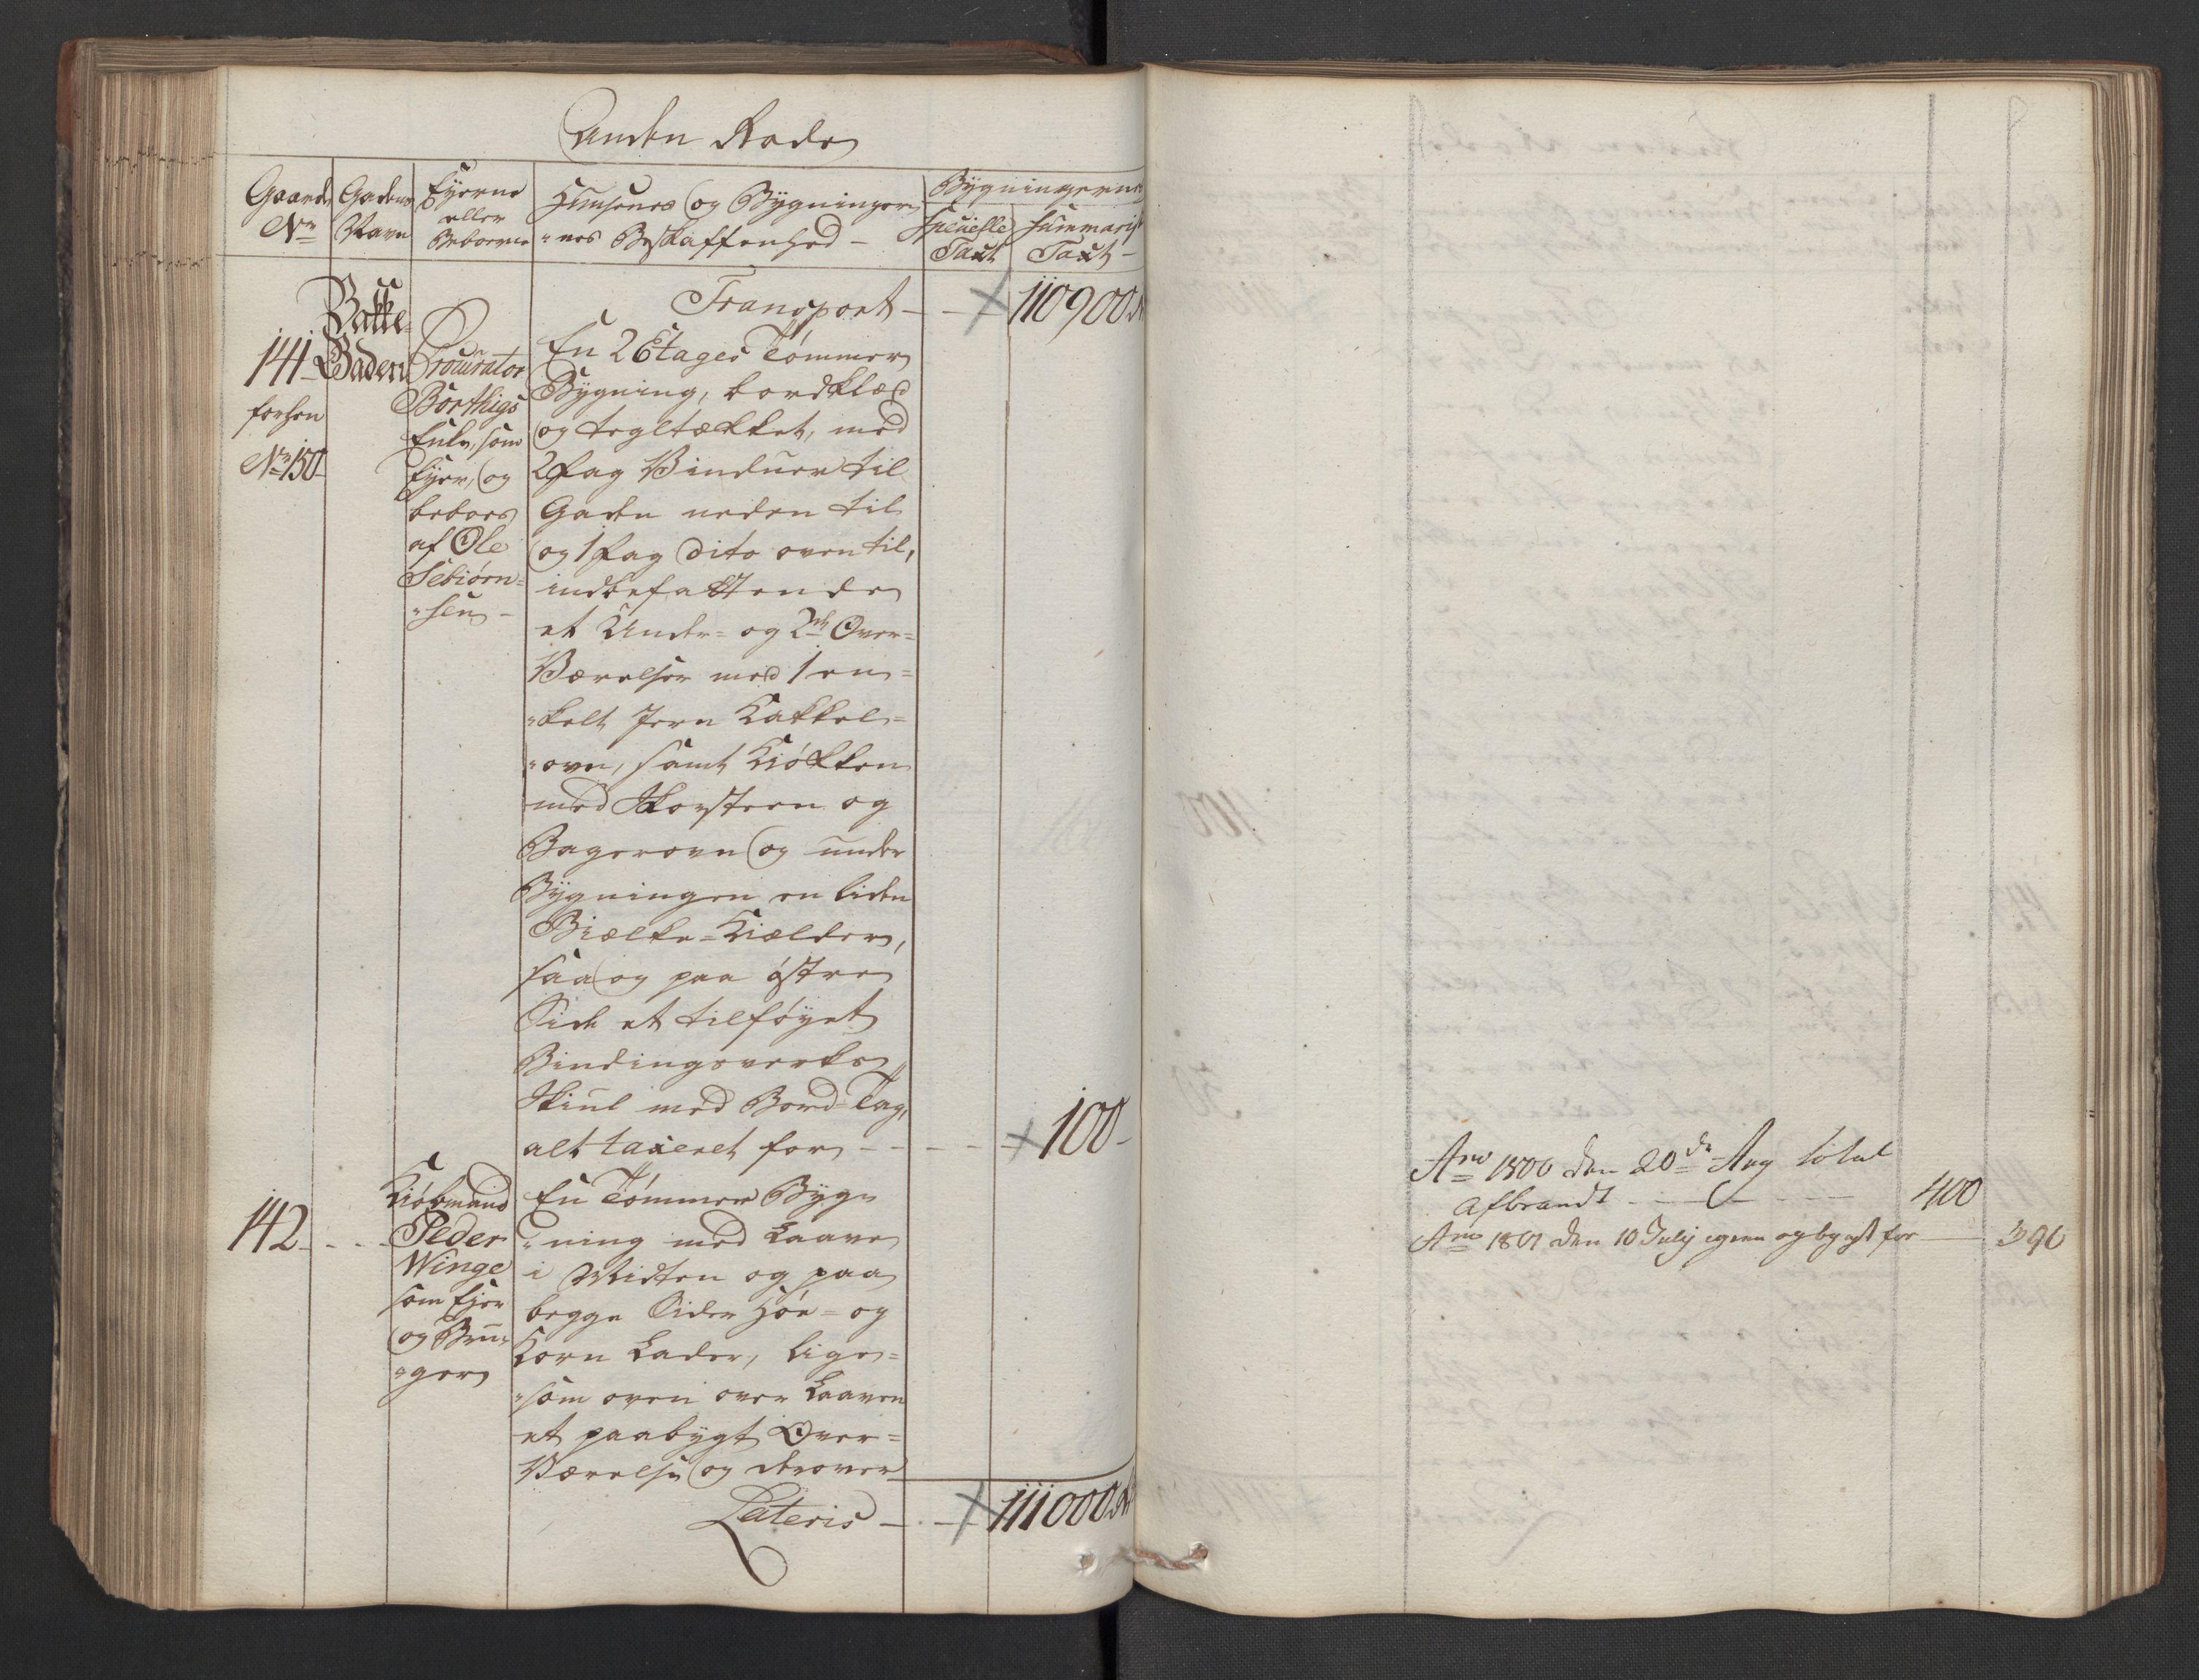 Anden Rode
Gaards No
Gadens Navn
Eyerne eller Beboerne
Huusenes og Bygninger
"nes Beskaffenhed -
Bygningerne
Specielle Taxt
Summarisk Taxt -
Transport - - 110900
Bakke-
Gaden
141-
forhen
No 150
Procurator
Borthigs
Enke, som
Eyer, og
beboes
af Ole
Sebiørn=
"sen -
En 2 Etages Tømmer
Bygning, bordklæd
og tegltækket, med
2 Fag Vinduer til
Gaden neden til
og 1 Fag Dito oven til,
indbefattende
et Under- og 2de Over=
Værelser med 1 en=
"kelt Jern Kakkel=
"ovn, samt Kiøkken
med Skorsteen og
Bagerovn og under
Bygningen en liden
Bielke-Kielder,
saa og paa østre
Side et tilføyet
Bindingsverks
Skiul med Bord-Tag,
alt taxeret for - - - - 100-
142 - - -
Kiøbmand
Peder
Winge
som Ejer
og Bru=
"ger
En Tømmer Byg=
"ning med Laave
i Midten og paa
begge Sider Høe- og
Korn Lader, lige=
"som oven over Laaven
et paabygt Over=
Værelse og derover
Lateris - - 111000
Ano 1800 den 20de Aug total
afbrandt - - - 400
Ano 1801 den 10 July igien opbygt for - 390